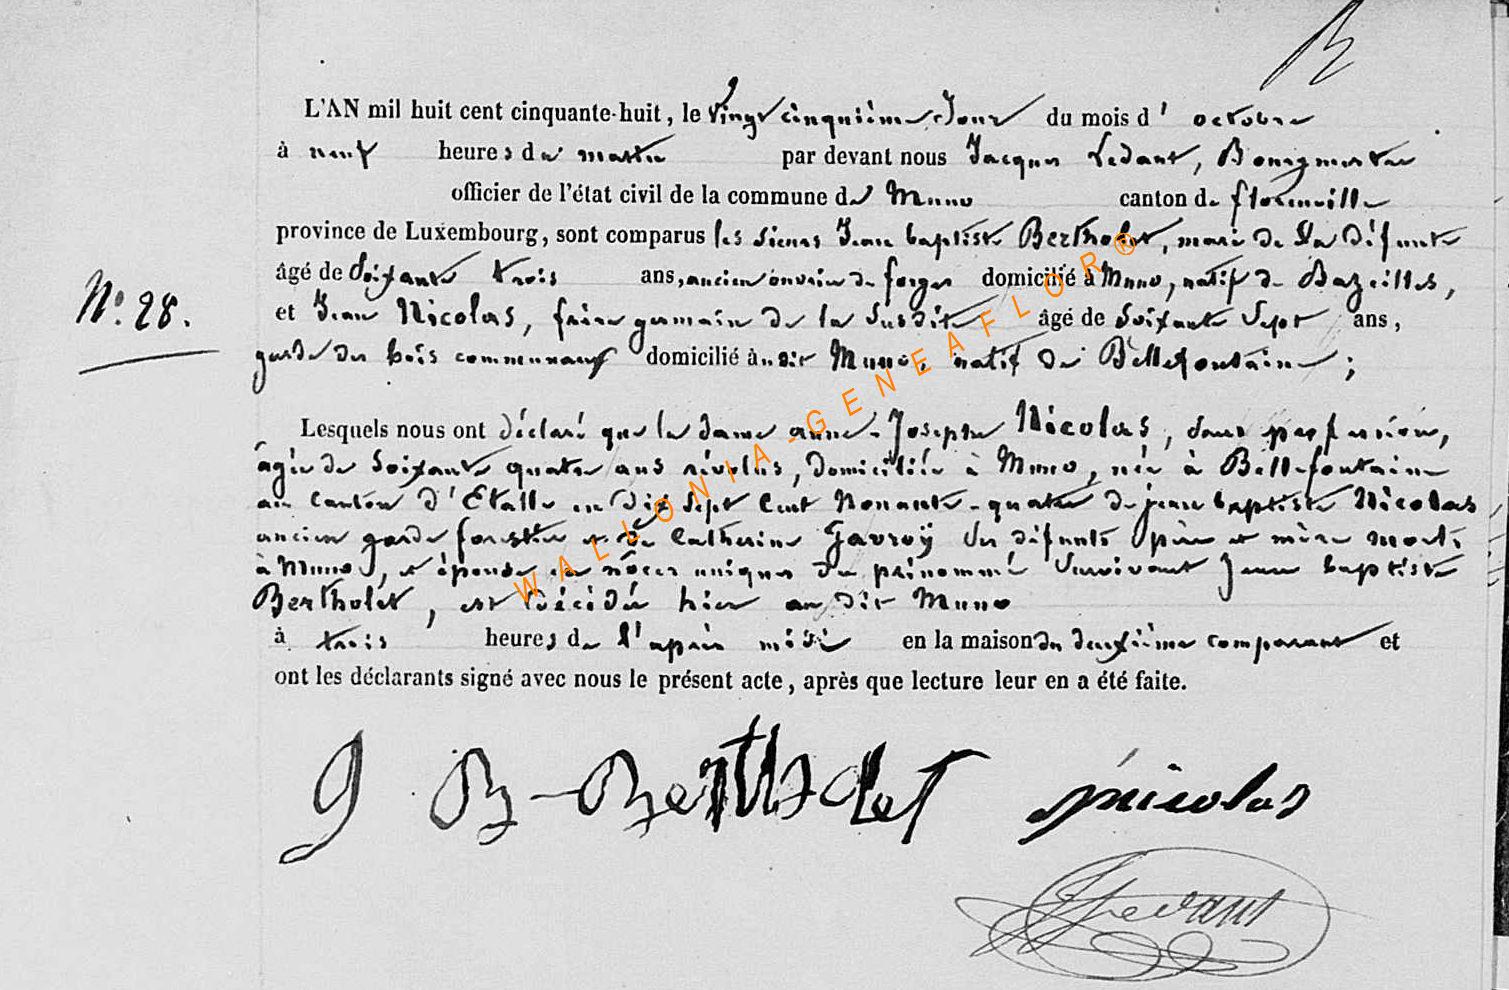 L'AN mil huit cent cinquante-huit, le vingt cinquième Jour du mois d' octobre
à neuf heures du matin par devant nous Jacques Ledant, Bourgmestre
officier de l'état civil de la commune de Muno canton de florenville
province de Luxembourg, sont comparus les sieurs Jean baptiste Bertholet, mari de la défunte
âgé de Soixante trois ans, ancien ouvrier de forges domicilié à Muno, natif de Bazeilles,
N° 28.
et Jean Nicolas, frère germain de la Susdite âgé de Soixante Sept ans,
garde des bois communaux domicilié au dit Muno, natif de Bellefontaine ;
Lesquels nous ont déclaré que la dame anne-Josephe Nicolas, sans profession,
âgée de Soixante quatre ans révolus, domiciliée à Muno, née à Bellefontaine
au Canton d'Etalle en dix Sept Cent Nonante-quatre de jean baptiste Nicolas
ancien garde forestier et de Catherine Gavroÿ Ses défunts père et mère morts
à Muno, et épouse en nôces uniques du prénommé Survivant Jean baptiste
Bertholet, est décédée hier au dit Muno
à trois heures de l'après midi en la maison du deuxième comparant et
ont les déclarants signé avec nous le présent acte, après que lecture leur en a été faite.
J B-Bertholet Nicolas
Ledant
WALLONIA-GENEAFLOR®